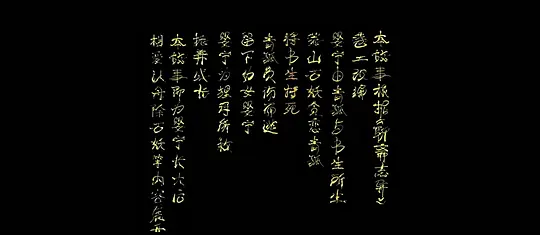 本故事根据《聊斋志异》
卷二改编
婴宁由青狐与书生所生
山石妖贪恋青狐
将书生打死
青狐负伤而逃
留下幼女婴宁
婴宁为母所救
抚养成长
本故事即为婴宁长大后
相爱认母除石妖等内容展开